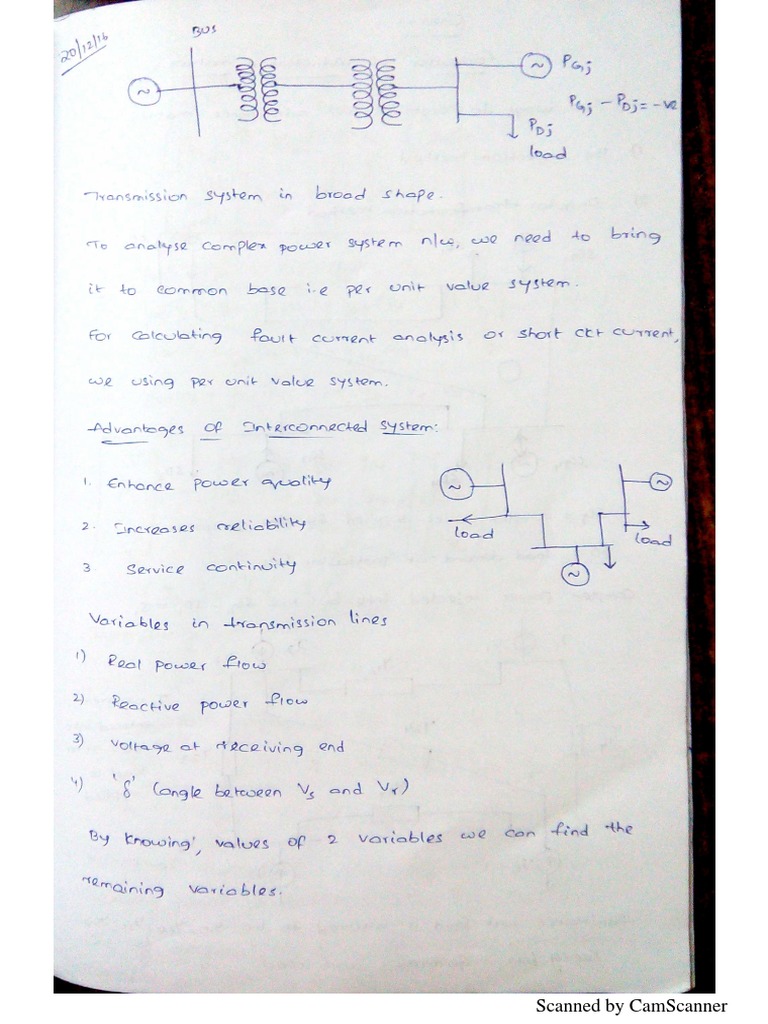 20/12/16
BUS
~
~ PGj
PGj - PDj = -ve
PDj
load
Transmission system in broad shape.
To analyse complex power system n/w, we need to bring
it to common base i.e per unit value system.
For calculating fault current analysis or short ckt current,
we using per unit value system.
Advantages of Interconnected system:
1. Enhance power quality
2. Increases reliability
3. Service continuity
~
~
load
load
~
Variables in transmission lines
1) Real power flow
2) Reactive power flow
3) Voltage at receiving end
4) 'δ' (angle between Vs and Vr)
By knowing, values of 2 variables we can find the
remaining variables.
Scanned by CamScanner